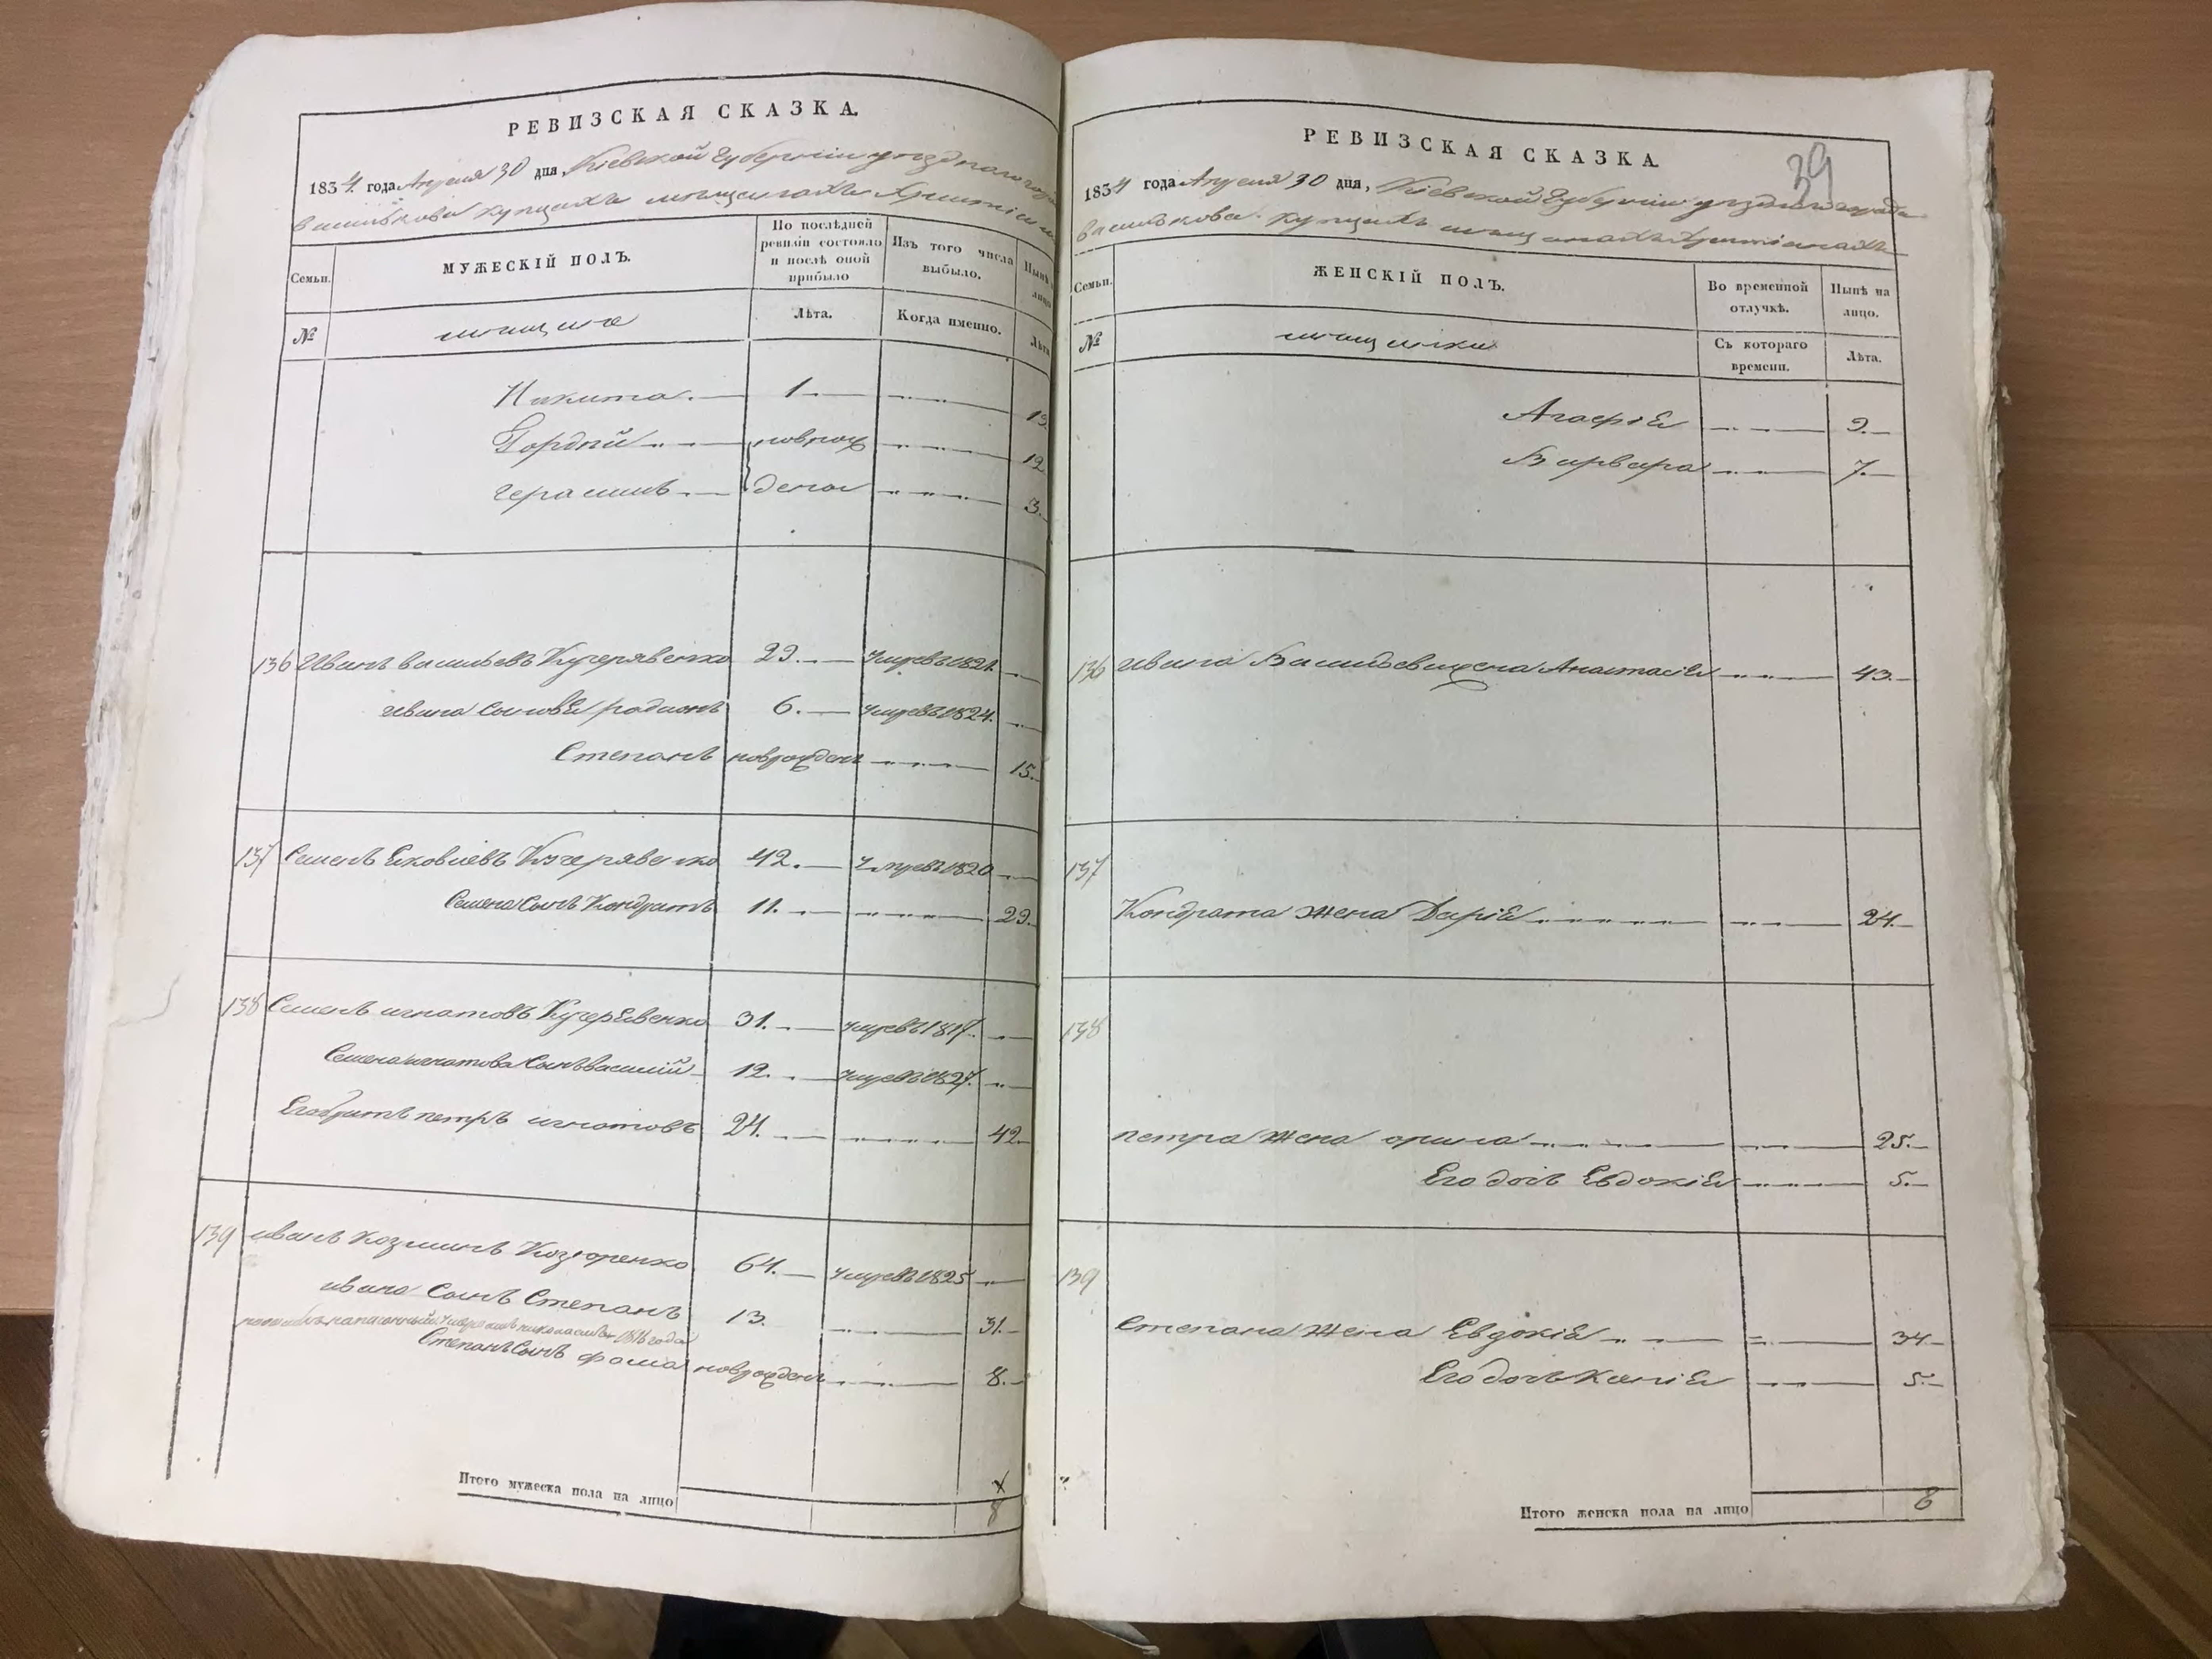 РЕВИЗСКАЯ СКАЗКА.
1834. года Апреля 30 дня, Кіевской Губерніи уѣзднаго
Василькова купцахъ мѣщанахъ
Семьи.
МУЖЕСКІЙ ПОЛЪ.
По послѣдней ревизіи состояло и послѣ оной прибыло
Изъ того числа выбыло.
Нынѣ лицо
№
мѣщане
Лѣта.
Когда именно.
Лѣта
Никита. 1. 19.
Гордѣй новрож 12
Герасимъ дены 3.
136 Иванъ Васильевъ Кучерявенко 29. Умревъ 1824.
Ивана сыновья родионъ 6. Умревъ 1824.
Степанъ новрожденъ 15.
137 Семенъ Яковлевъ Кучерявенко 42. Умревъ 1820
Семена сынъ Кондратъ 11. 29.
138 Семенъ игнатовъ Кучерявенко 31. Умревъ 1817.
Семена игнатова сынъ василій 12. Умревъ 1827.
Его братъ петръ игнатовъ 24. 42.
139 иванъ козминъ 64. Умревъ 1825
ивана сынъ Степанъ 13. 31.
1816 года
Степанъ сынъ фома новрожденъ 8.
Итого мужеска пола на лицо 8
РЕВИЗСКАЯ СКАЗКА.
39
1834 года Апреля 30 дня, Кіевской Губерніи уѣзднаго города
Василькова. купцахъ мѣщанахъ
Семьи.
ЖЕНСКІЙ ПОЛЪ.
Во временной отлучкѣ.
Нынѣ на лицо.
№
мѣщанки
Съ котораго времени.
Лѣта.
Агафія 9.
Варвара 7.
136 Ивана Васильева жена Анастасія 43.
137
Кондрата жена Дарія 24.
138
петра жена орина 25.
Его дочь Евдокія 5.
139
Степана жена Евдокія 34.
Его дочь 5.
Итого женска пола на лицо 8